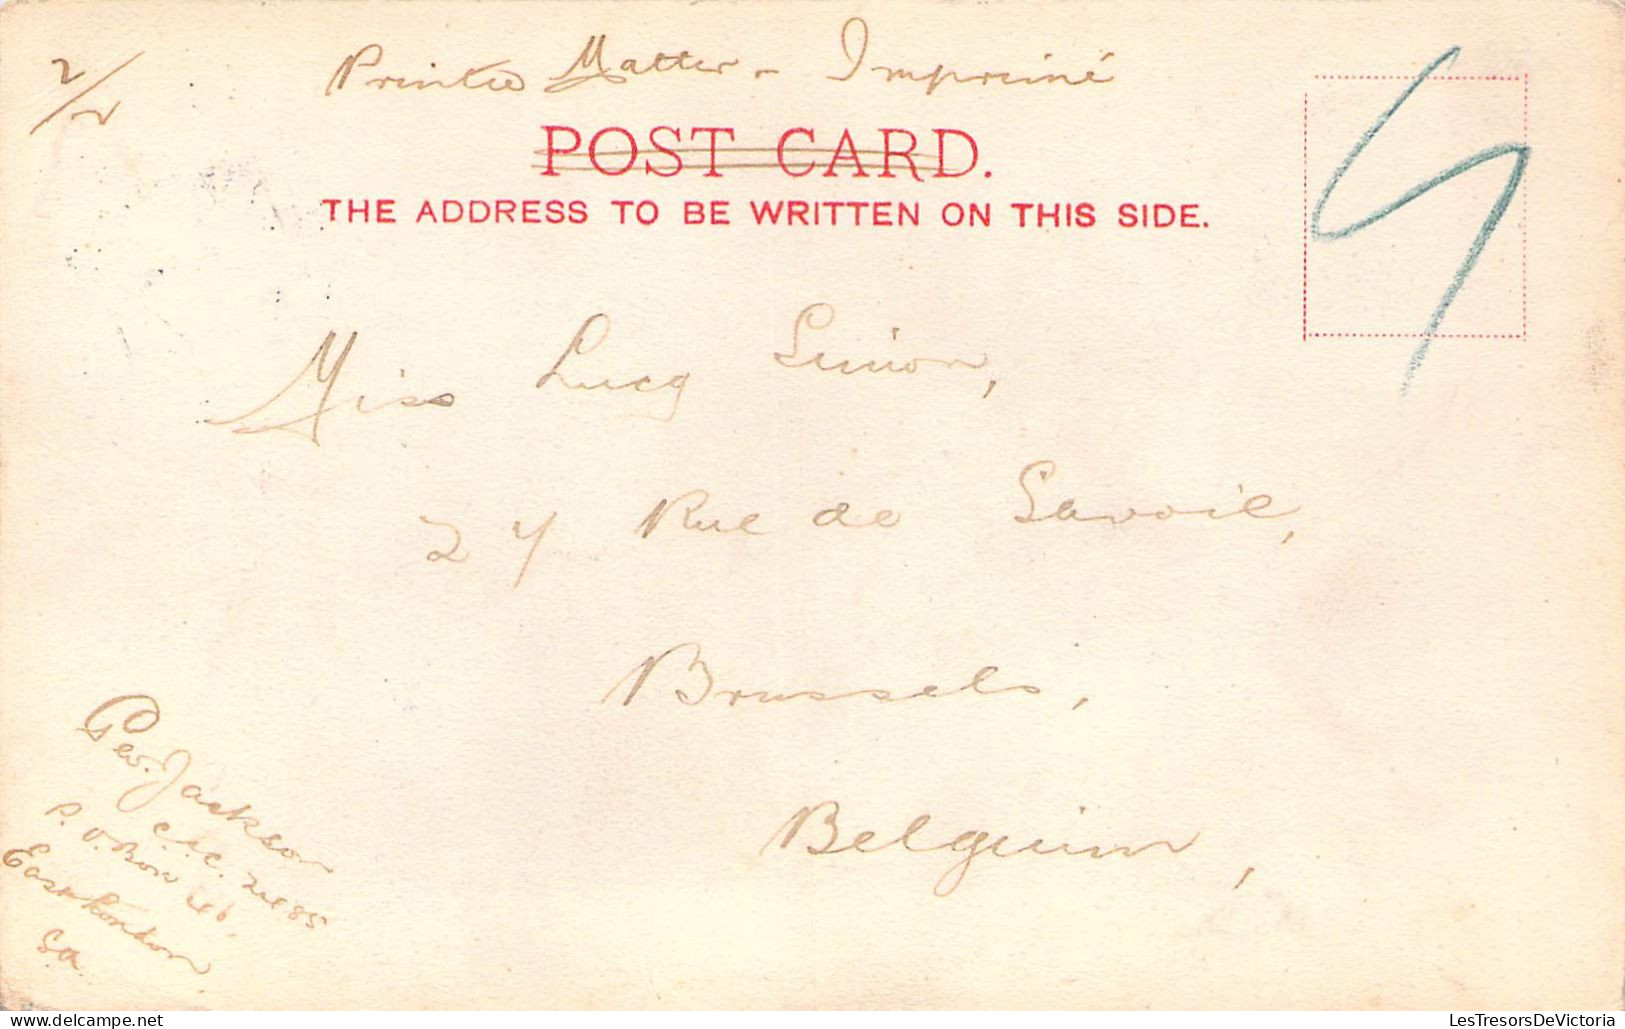 2/2
Printed Matter - Imprimé
POST CARD.
THE ADDRESS TO BE WRITTEN ON THIS SIDE.
Miss Lucy Simon,
27 Rue de Savoie,
Brussels,
Belgium,
Geo. Jackson
C.C.C. 2485
P.O. Box 46,
East London
SA.
LesTresorsDeVictoria